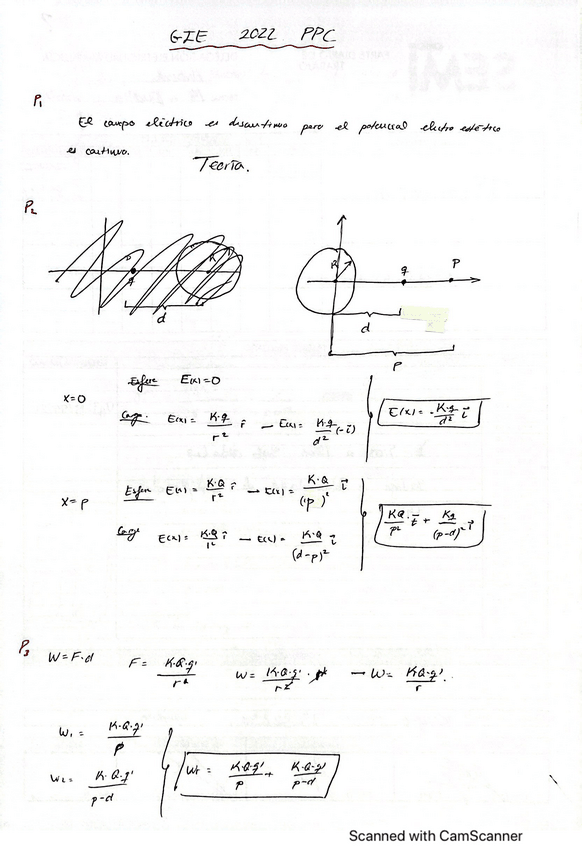 GIE 2022 PPC
P1
El campo eléctrico es discontinuo pero el potencial electro estático
es continuo.
Teoría.
P2
R
q
P
d
d
P
X=0
Esfera E(x)=0
Carga. E(x) = K·q / r² r̂ → E(x) = K·q / d² (-i⃗)
E(x) = - K·q / d² i⃗
X=p
Esfera E(x) = K·Q / r² r̂ → E(x) = K·Q / (p)² i⃗
Carga E(x) = K·Q / r² r̂ → E(x) = K·Q / (d-p)² i⃗
KQ / p² i⃗ + Kq / (p-d)² i⃗
P3
W = F·d F = K·Q·q' / r² W = K·Q·q' / r² · r → W = K·Q·q' / r
W1 = K·Q·q' / p
W2 = K·Q·q' / p-d
WT = K·Q·q' / p + K·Q·q' / p-d
Scanned with CamScanner